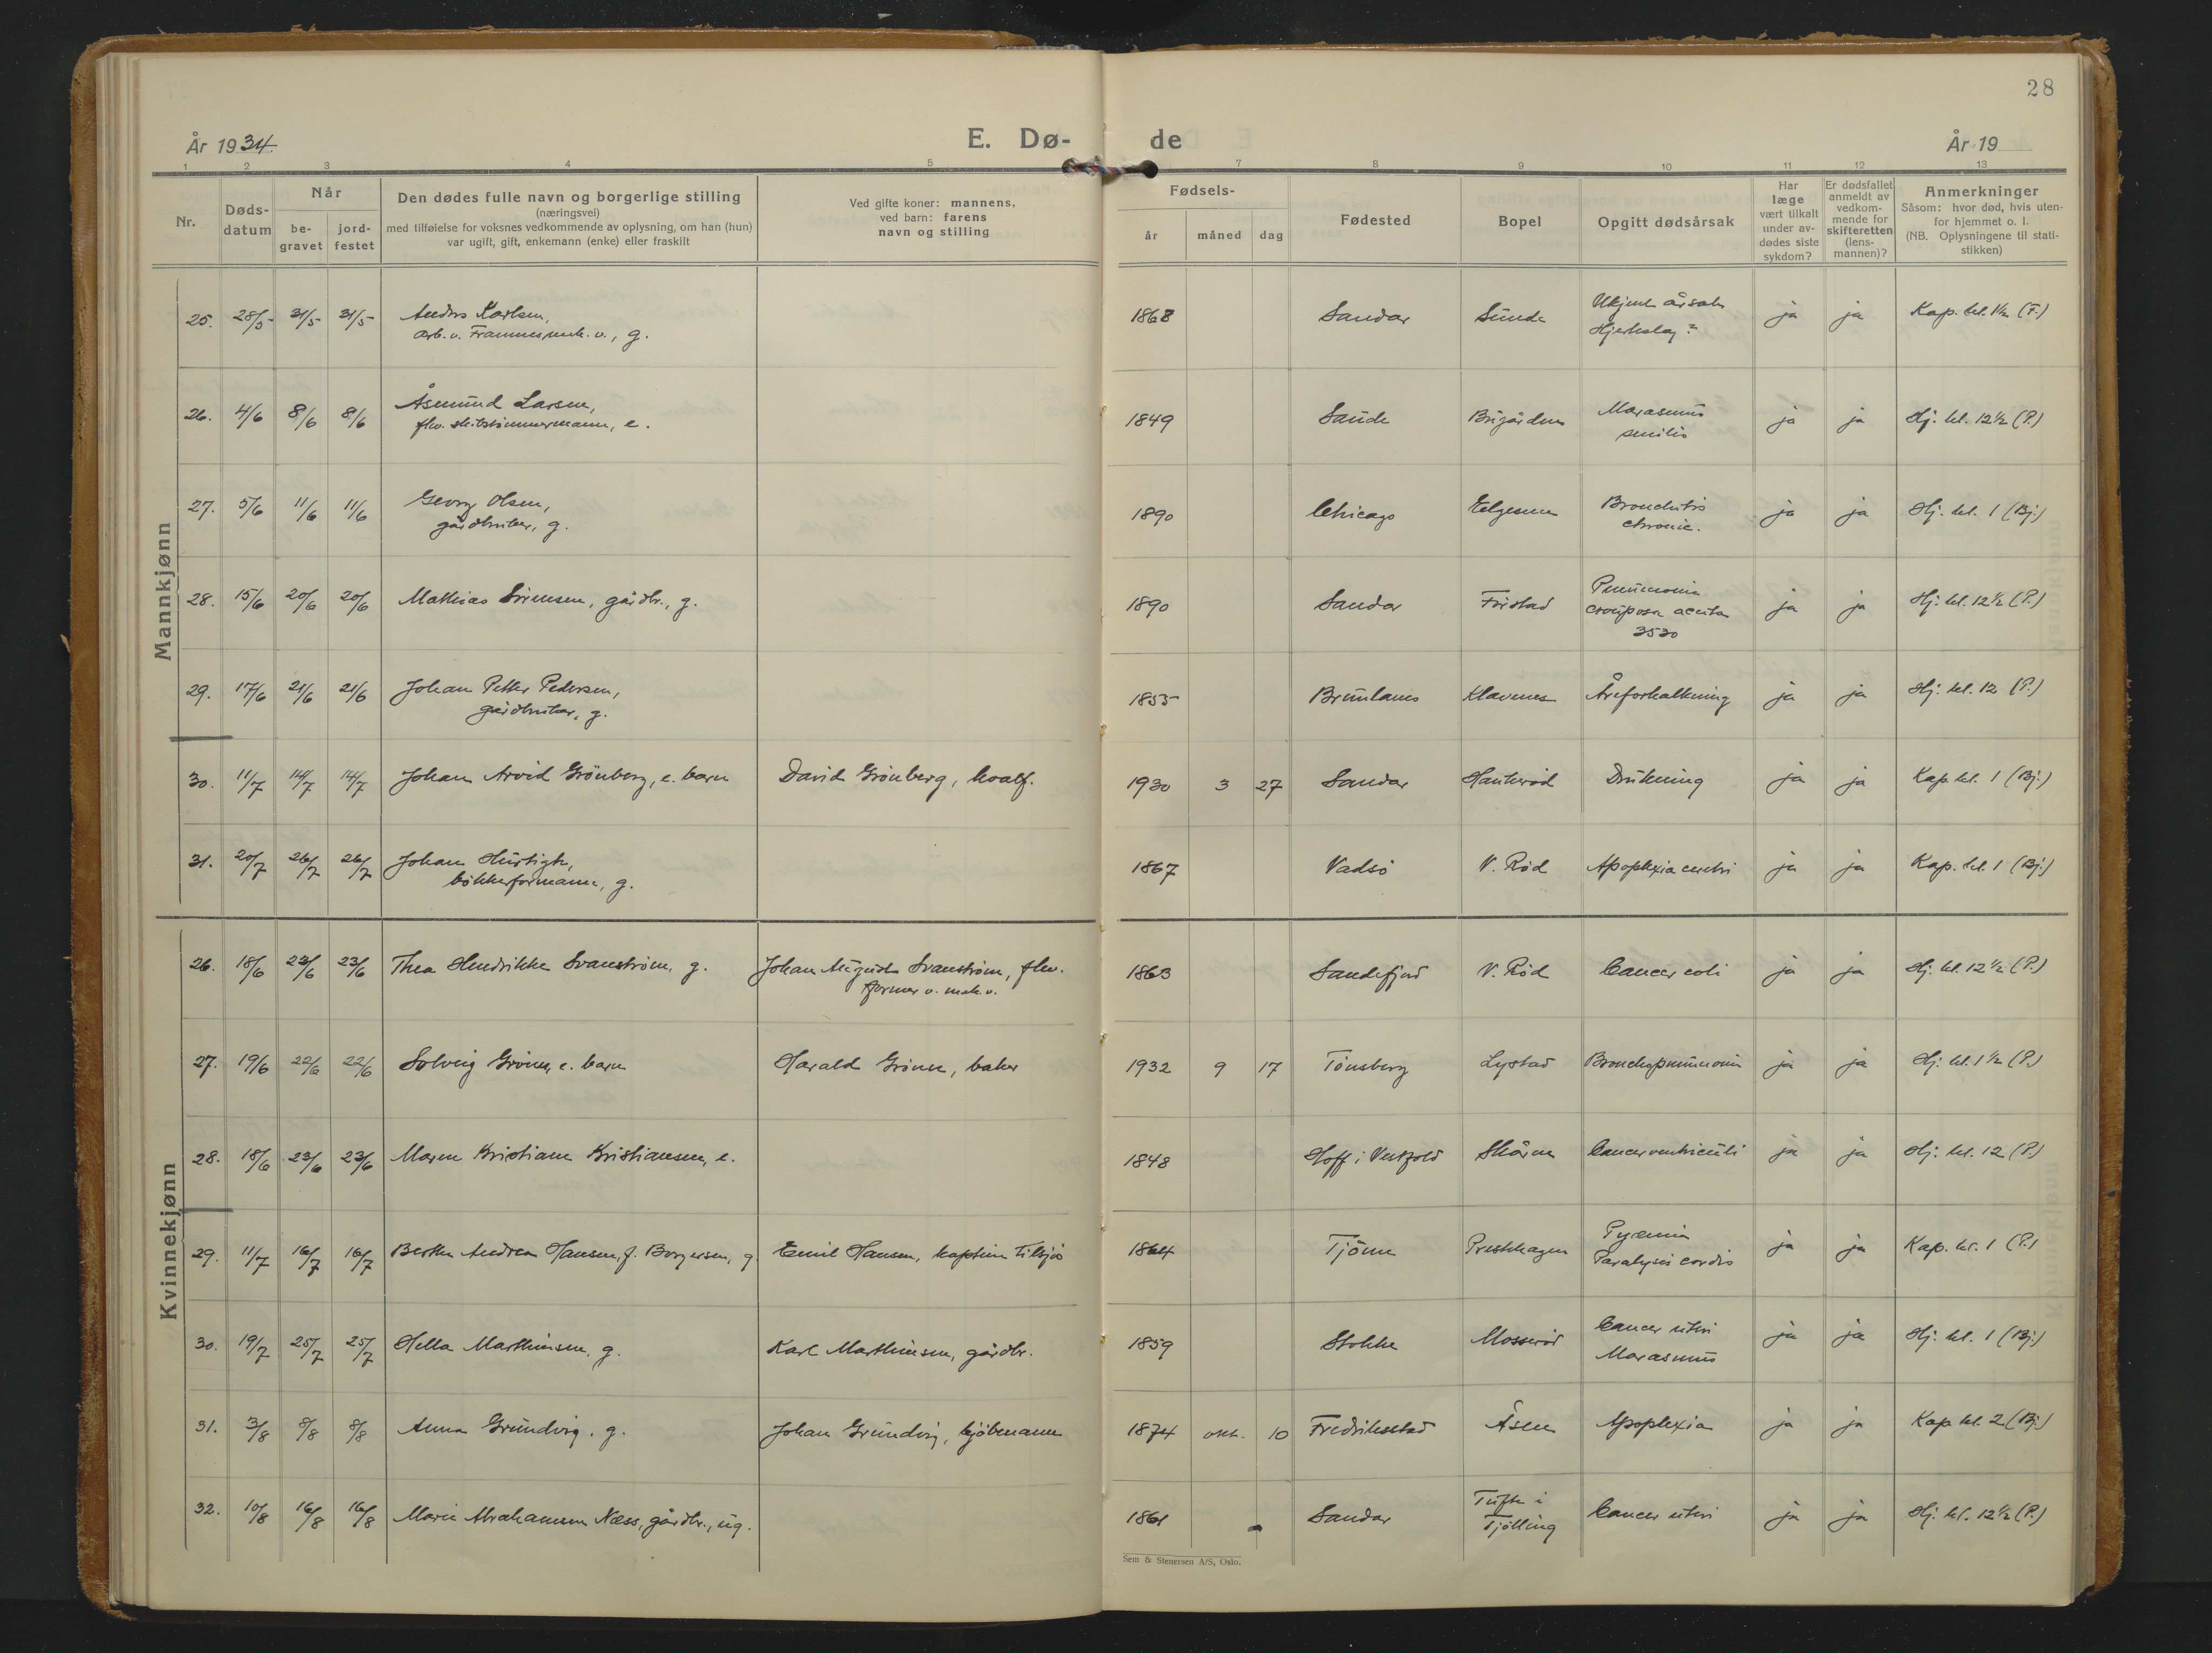 28
År 1934. E. Dø- de År 19
1 2 3 4 5 7 8 9 10 11 12 13
Nr.
Døds-
datum
Når
be-
gravet
jord-
festet
Den dødes fulle navn og borgerlige stilling
(næringsvei)
med tilføielse for voksnes vedkommende av oplysning, om han (hun)
var ugift, gift, enkemann (enke) eller fraskilt
Ved gifte koner: mannens,
ved barn: farens
navn og stilling
Fødsels-
år måned dag
Fødested
Bopel
Opgitt dødsårsak
Har
læge
vært tilkalt
under av-
dødes siste
sykdom?
Er dødsfallet
anmeldt av
vedkom-
mende for
skifteretten
(lens-
mannen)?
Anmerkninger
Såsom: hvor død, hvis uten-
for hjemmet o. l.
(NB. Oplysningene til stati-
stikken)
Mannkjønn
25. 28/5 31/5 31/5 Anders Karlsen, 1868 Sandar Sunde Ukjent årsak ja ja Kap. kl. 1½ (F.)
arb. v. Framnes mek. v., g. Hjerteslag?
26. 4/6 8/6 8/6 Åsmund Larsen, 1849 Sande Brigården Marasmus ja ja Hj. kl. 12½ (P.)
fhv. skibstømmermann, e. senilis
27. 5/6 11/6 11/6 Georg Olsen, 1890 Chicago Elgesem Bronchitis ja ja Hj. kl. 1 (Bj.)
gårdbruker, g. chronic.
28. 15/6 20/6 20/6 Mathias Sørensen, gårdbr., g. 1890 Sandar Forstad Pneumonia ja ja Hj. kl. 12½ (P.)
crouposa acuta
3530
29. 17/6 21/6 21/6 Johan Petter Pedersen, 1855 Brunlanes Klavenes Åreforkalkning ja ja Hj. kl. 12 (P.)
gårdbruker, g.
30. 11/7 14/7 14/7 Johan Arvid Grönberg, e. barn David Grönberg, hvalf. 1930 3 27 Sandar Haukerød Drukning ja ja Kap. kl. 1 (Bj.)
31. 20/7 26/7 26/7 Johan Hurtigh, 1867 Vadsö V. Röd Apoplexia cerebri ja ja Kap. kl. 1 (Bj.)
bökkerformann, g.
Kvinnekjønn
26. 18/6 23/6 23/6 Thea Hendrikke Svanström, g. Johan August Svanström, fhv. 1863 Sandefjord V. Röd Cancer coli ja ja Hj. kl. 12½ (P.)
former v. mek. v.
27. 19/6 22/6 22/6 Solveig Grönn, e. barn Harald Grönn, baker 1932 9 17 Tönsberg Lystad Bronchopneumoni ja ja Hj. kl. 1½ (P.)
28. 18/6 23/6 23/6 Maren Kristiane Kristiansen, e. 1848 Hoff i Vestfold Skåren Cancer ventriculi ja ja Hj. kl. 12 (P.)
29. 11/7 16/7 16/7 Berthe Andrea Hansen, f. Borgersen, g. Emil Hansen, kaptein tilsjös 1864 Tjöme Presthagen Pyæmia ja ja Kap. kl. 1 (P.)
Paralysis cordis
30. 19/7 25/7 25/7 Hella Marthinsen, g. Karl Marthinsen, gårdbr. 1859 Stokke Mosserød Cancer uteri ja ja Hj. kl. 1 (Bj.)
Marasmus
31. 3/8 8/8 8/8 Anna Grundvig, g. Johan Grundvig, kjöbmann 1874 okt. 10 Fredrikstad Åsen Apoplexia ja ja Kap. kl. 2 (Bj.)
32. 10/8 16/8 16/8 Marie Abrahamsen Næss, gårdbr., ug. 1861 Sandar Tufte i Cancer uteri ja ja Hj. kl. 12½ (P.)
Tjølling
Sem & Stenersen A/S, Oslo.